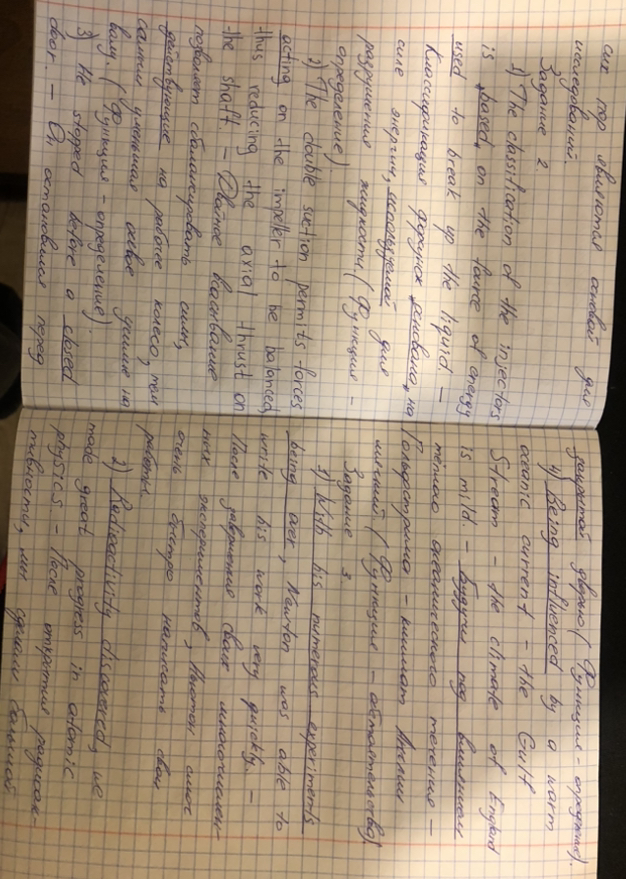 сих пор являются основой для
исследований.
Задание 2.
1) The classification of the injectors
is based on the source of energy
used to break up the liquid —
Классификация форсунок основана на
силе энергии, используемой для
разрушения жидкости. (Функция –
определение).
2) The double suction permits forces
acting on the impeller to be balanced,
thus reducing the axial thrust on
the shaft – Двойное всасывание
позволяет сбалансировать силы,
действующие на рабочее колесо, тем
самым уменьшая осевое усилие на
валу. (Функция – определение).
3) He stopped before a closed
door. – Он остановился перед
закрытой дверью (Функция – определение).
4) Being influenced by a warm
oceanic current – the Gulf
Stream – the climate of England
is mild – Будучи под влиянием
тёплого океанического течения –
Гольфстрима – климат Англии
мягкий (Функция – обстоятельство)
Задание 3.
1) With his numerous experiments
being over, Newton was able to
write his work very quickly. –
После завершения своих многочислен-
ных экспериментов, Ньютон смог
очень быстро написать свои
работы.
2) Radioactivity discovered, we
made great progress in atomic
physics. – После открытия радиоак-
тивности, мы сделали большой